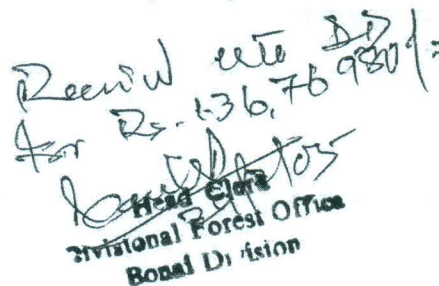 Received
for Rs. 1,36,76,980/-
Head Clerk
Divisional Forest Office
Bonai Division